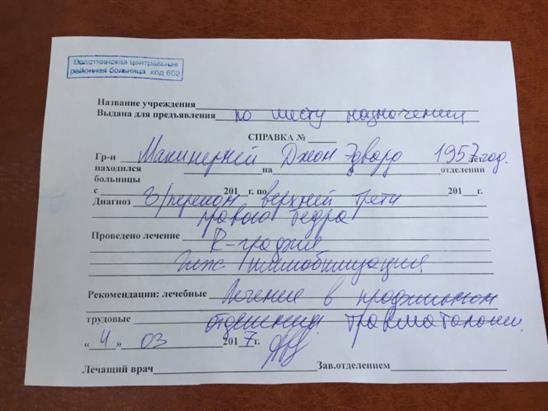 центральная
районная больница код 602
Название учреждения
Выдана для предъявления по месту назначения
СПРАВКА №
Гр-н Макинерней Джон Эдвард 1957 год.
находился на отделении
больницы
с 201 г. по 201 г.
Диагноз З/перелом верхней трети
правого бедра
Проведено лечение R-графия
Гипс. иммобилизация
Рекомендации: лечебные Лечение в профильном
трудовые отделении травматологии.
«4» 03 2017г.
Лечащий врач Зав.отделением